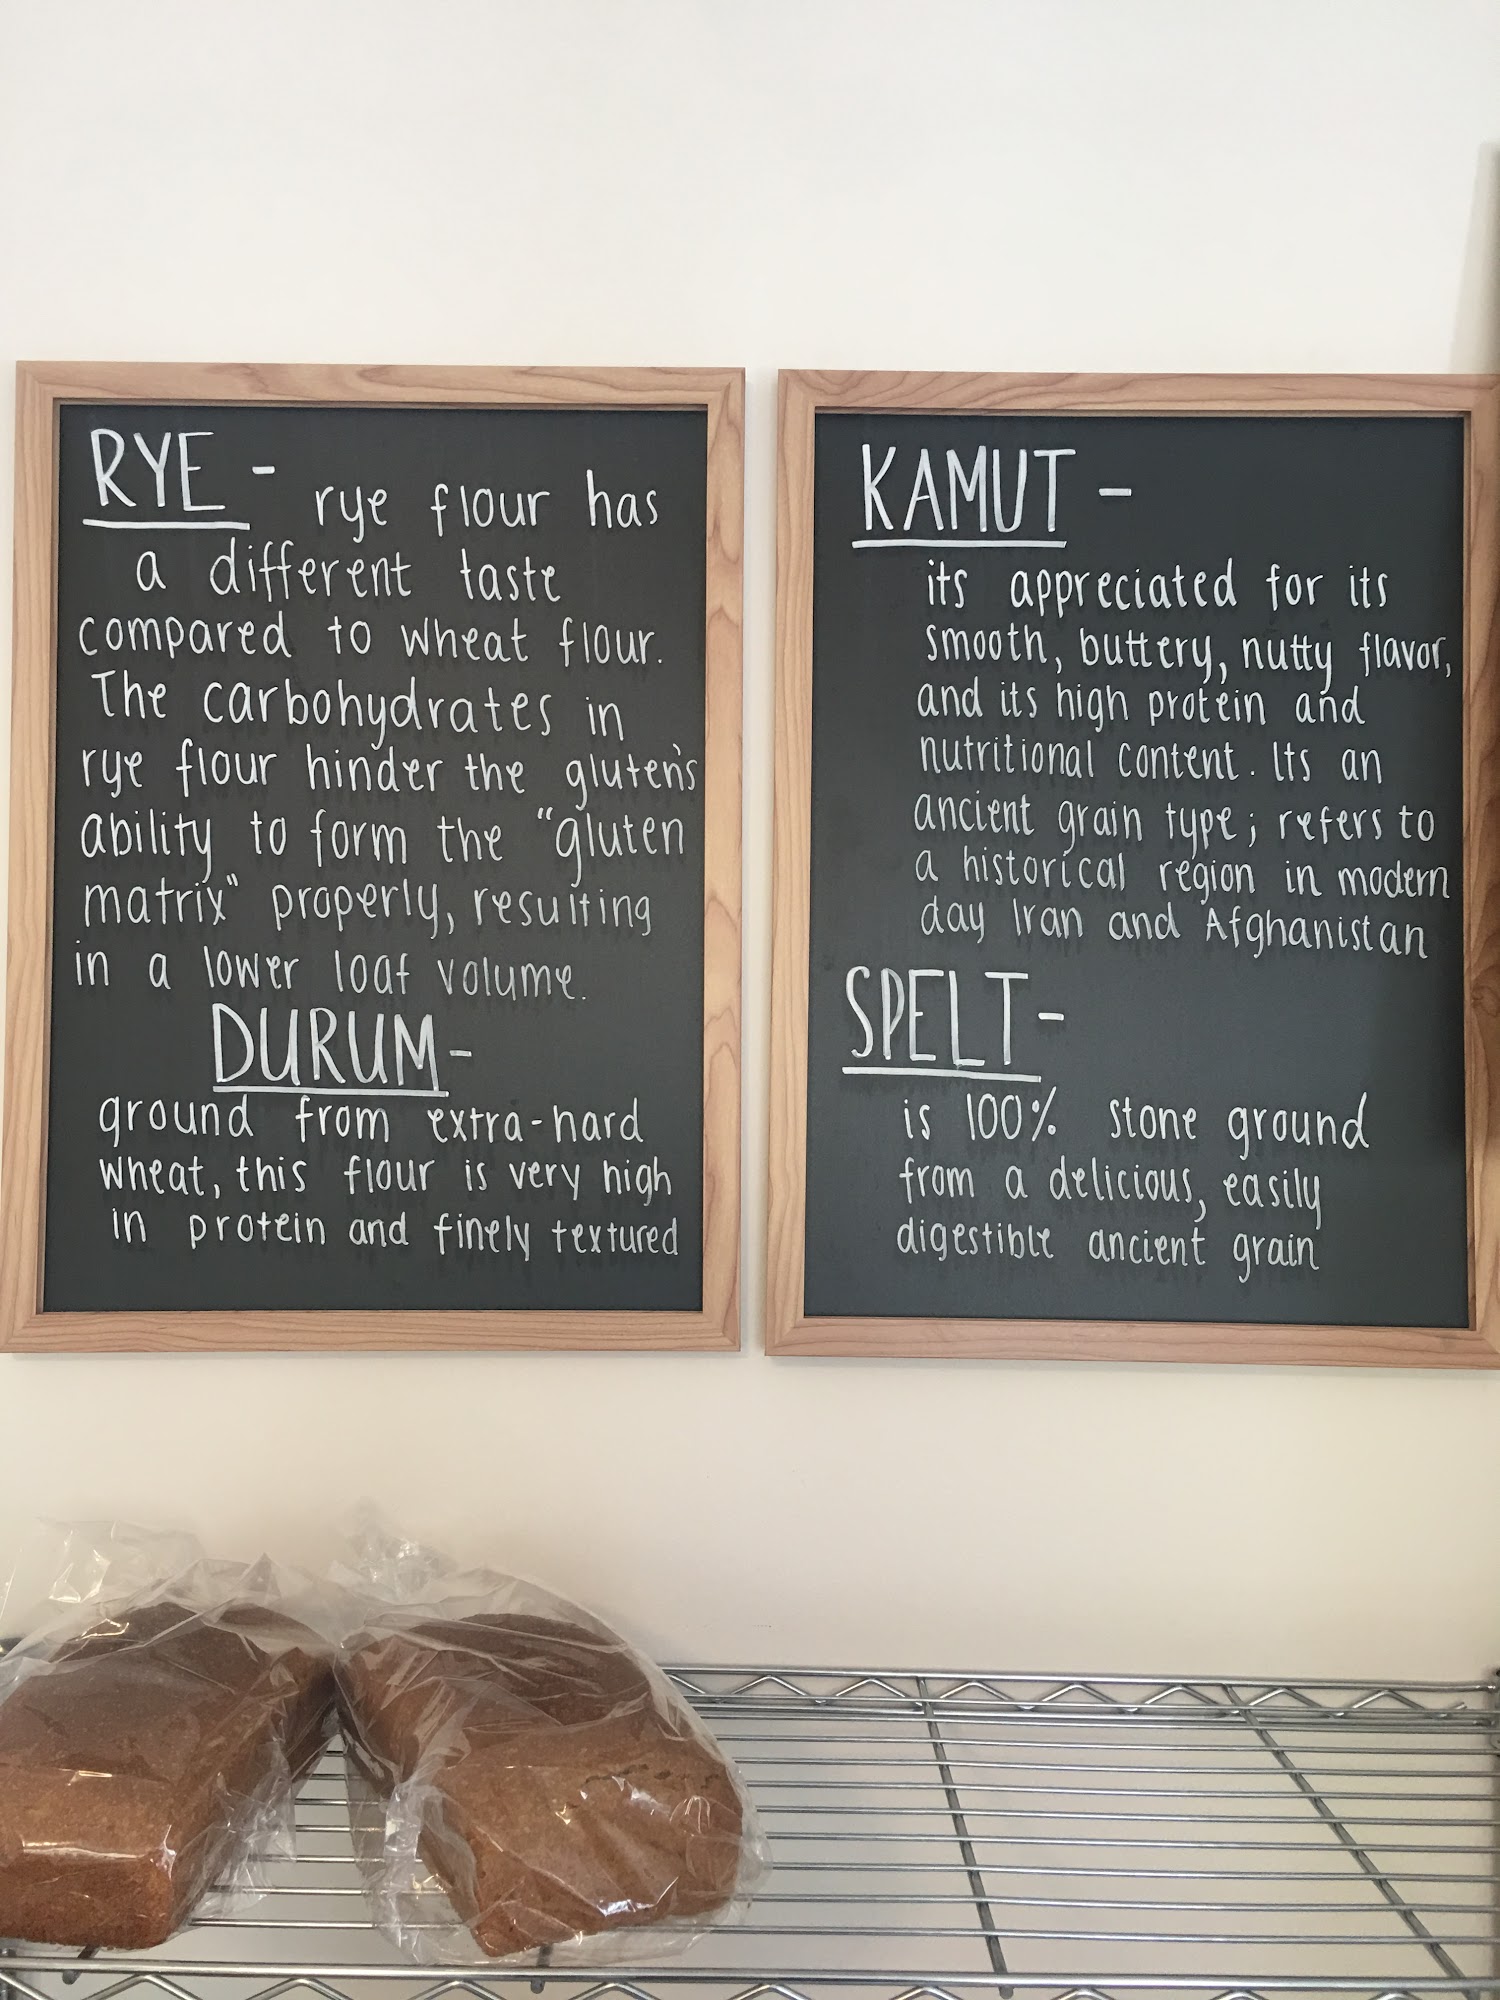 RYE - rye flour has
a different taste
compared to wheat flour.
The carbohydrates in
rye flour hinder the gluten's
ability to form the "gluten
matrix" properly, resulting
in a lower loaf volume.
DURUM-
ground from extra-hard
wheat, this flour is very high
in protein and finely textured
KAMUT -
its appreciated for its
smooth, buttery, nutty flavor,
and its high protein and
nutritional content. Its an
ancient grain type; refers to
a historical region in modern
day Iran and Afghanistan
SPELT-
is 100% stone ground
from a delicious, easily
digestible ancient grain